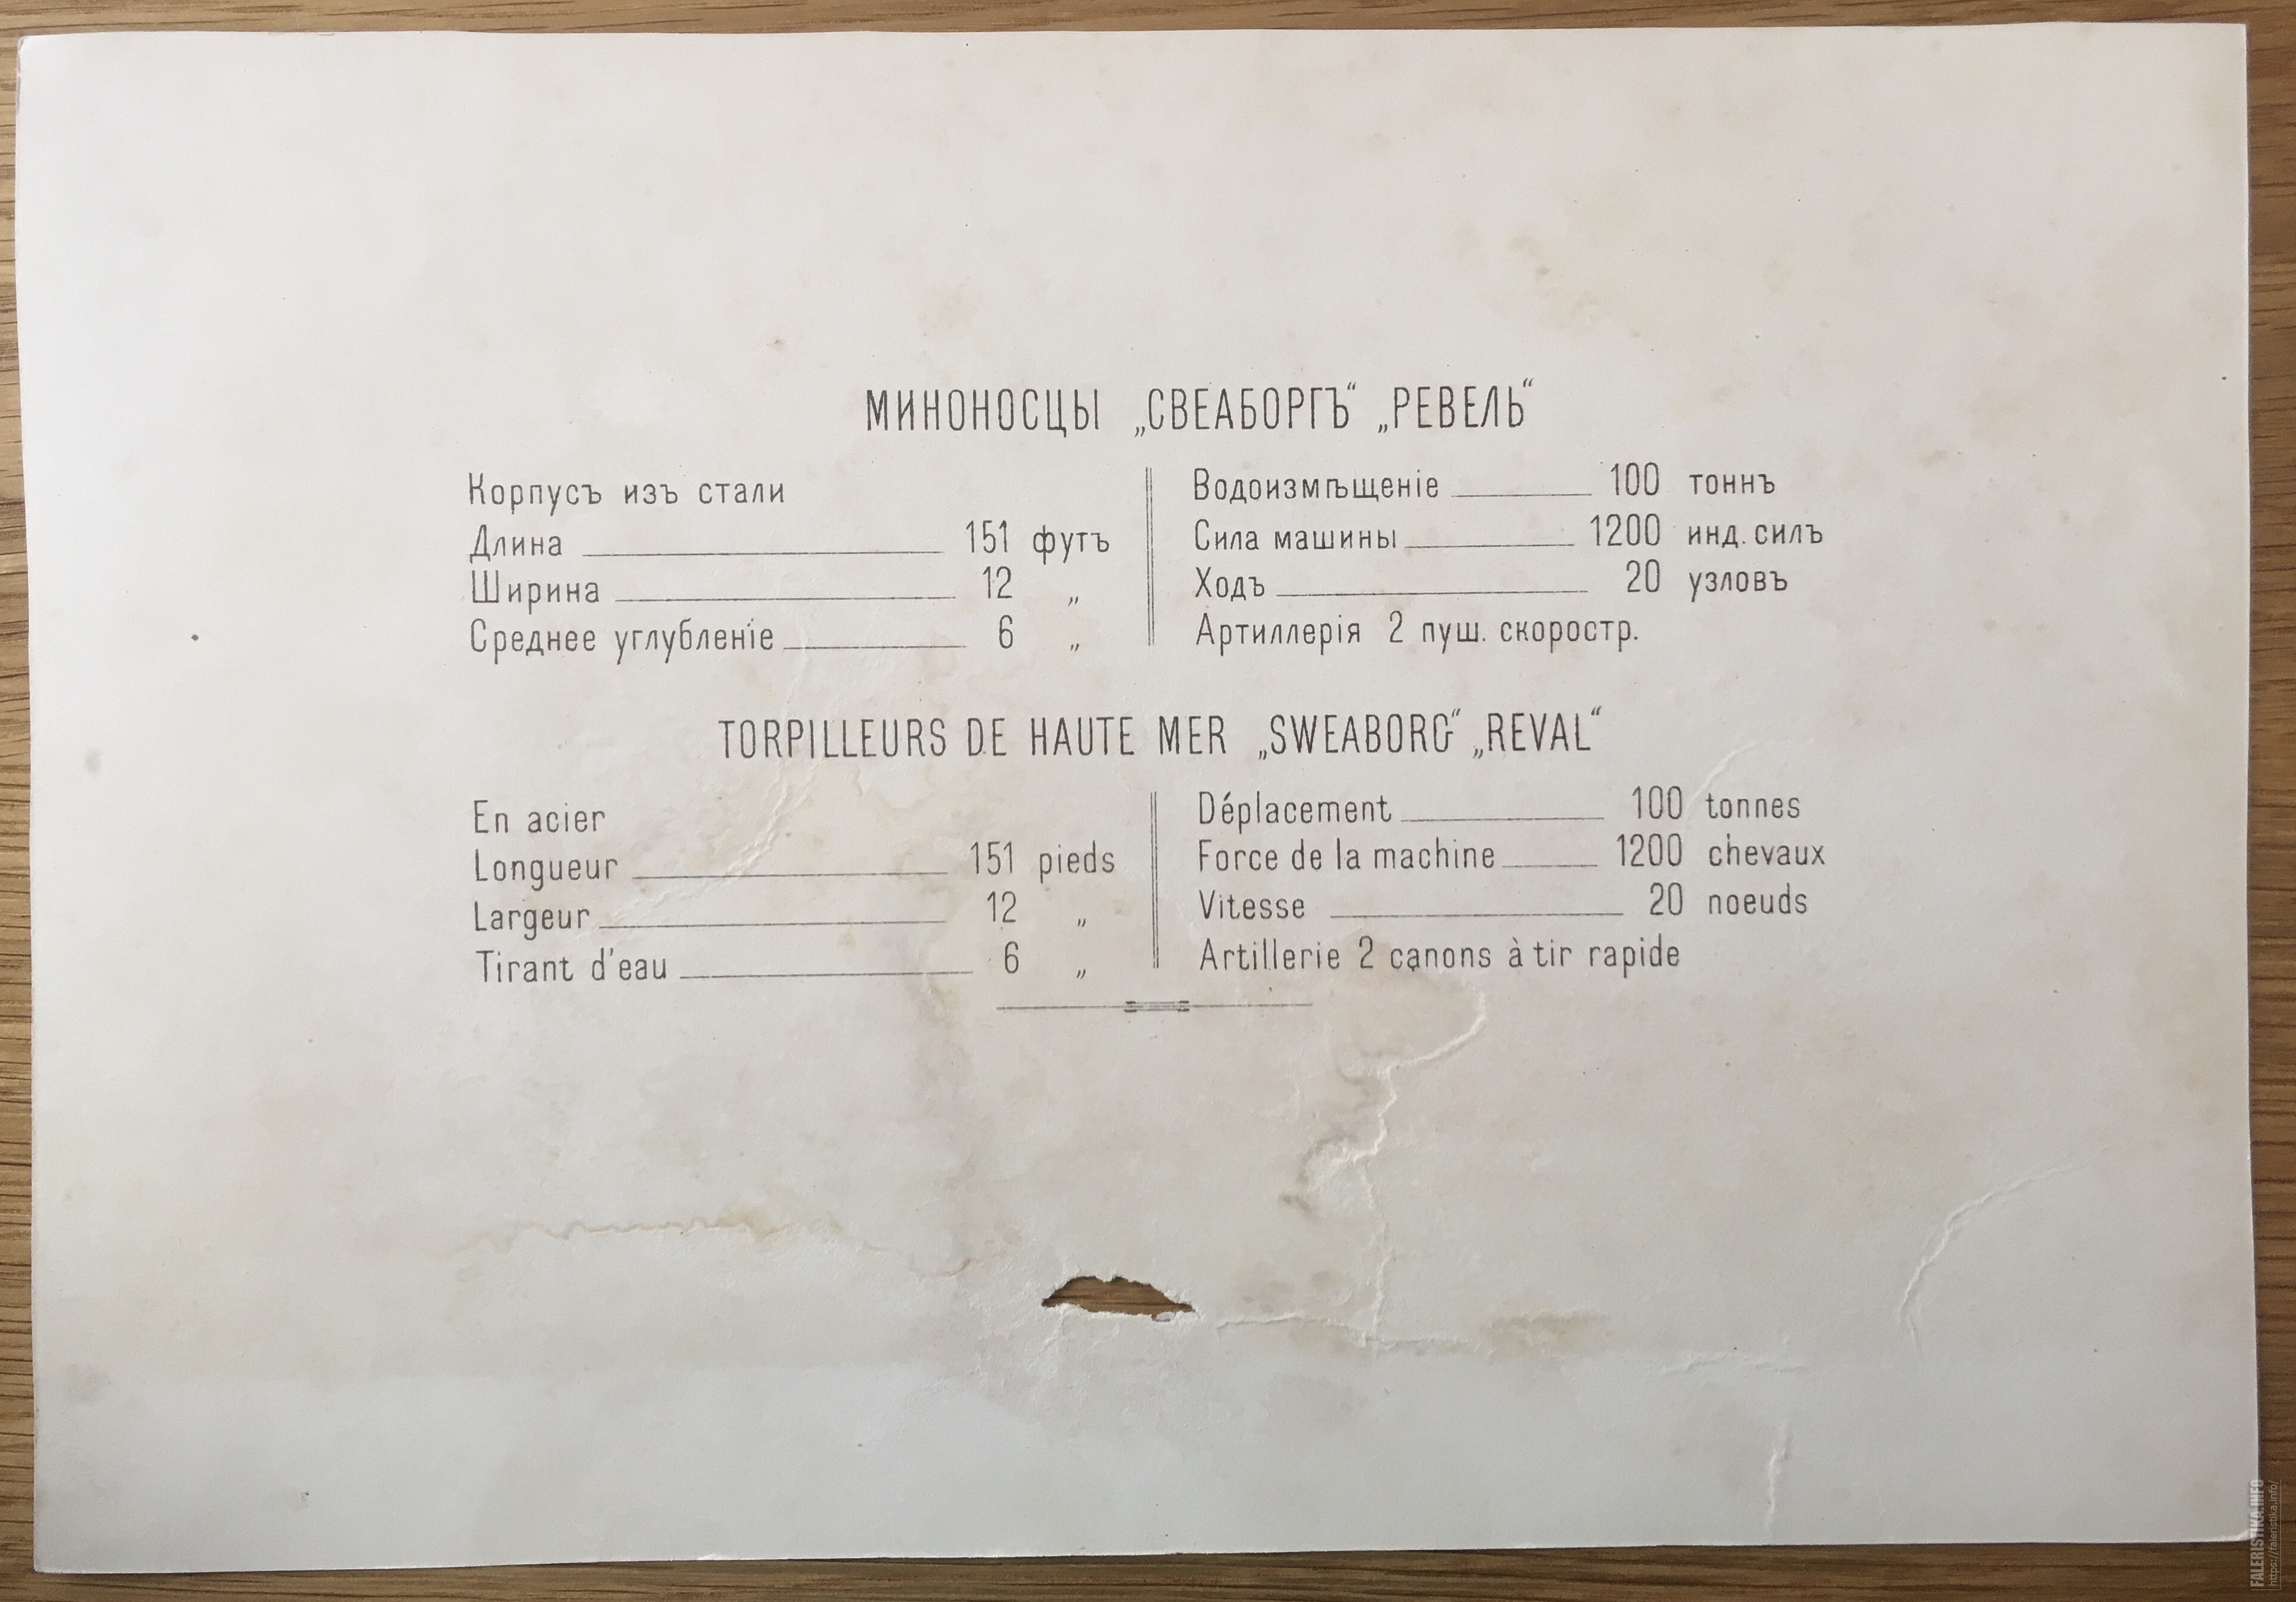 МИНОНОСЦЫ „СВЕАБОРГЪ“ „РЕВЕЛЬ“
Корпусъ изъ стали
Длина 151 футъ
Ширина 12 „
Среднее углубленіе 6 „
Водоизмѣщеніе 100 тоннъ
Сила машины 1200 инд. силъ
Ходъ 20 узловъ
Артиллерія 2 пуш. скоростр.
TORPILLEURS DE HAUTE MER „SWEABORG“ „REVAL“
En acier
Longueur 151 pieds
Largeur 12 „
Tirant d'eau 6 „
Déplacement 100 tonnes
Force de la machine 1200 chevaux
Vitesse 20 noeuds
Artillerie 2 canons à tir rapide
FALERISTIKA.INFO
https://faleristika.info/